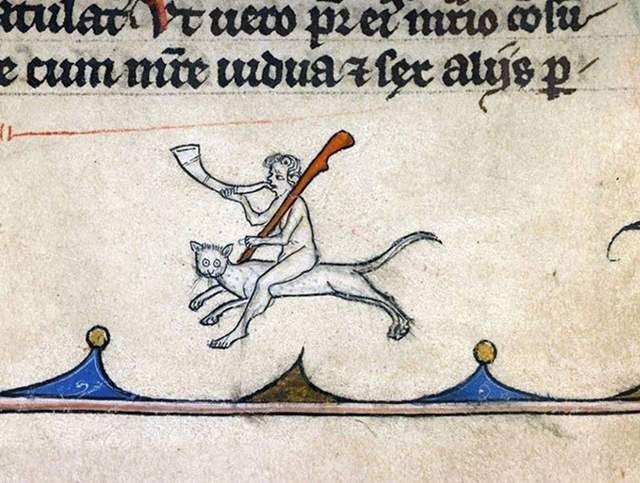 atulat Ut uero pr̄ ei᷒ mr̄io cōsu
e cum mr̄e uidua ⁊ sex alijs p